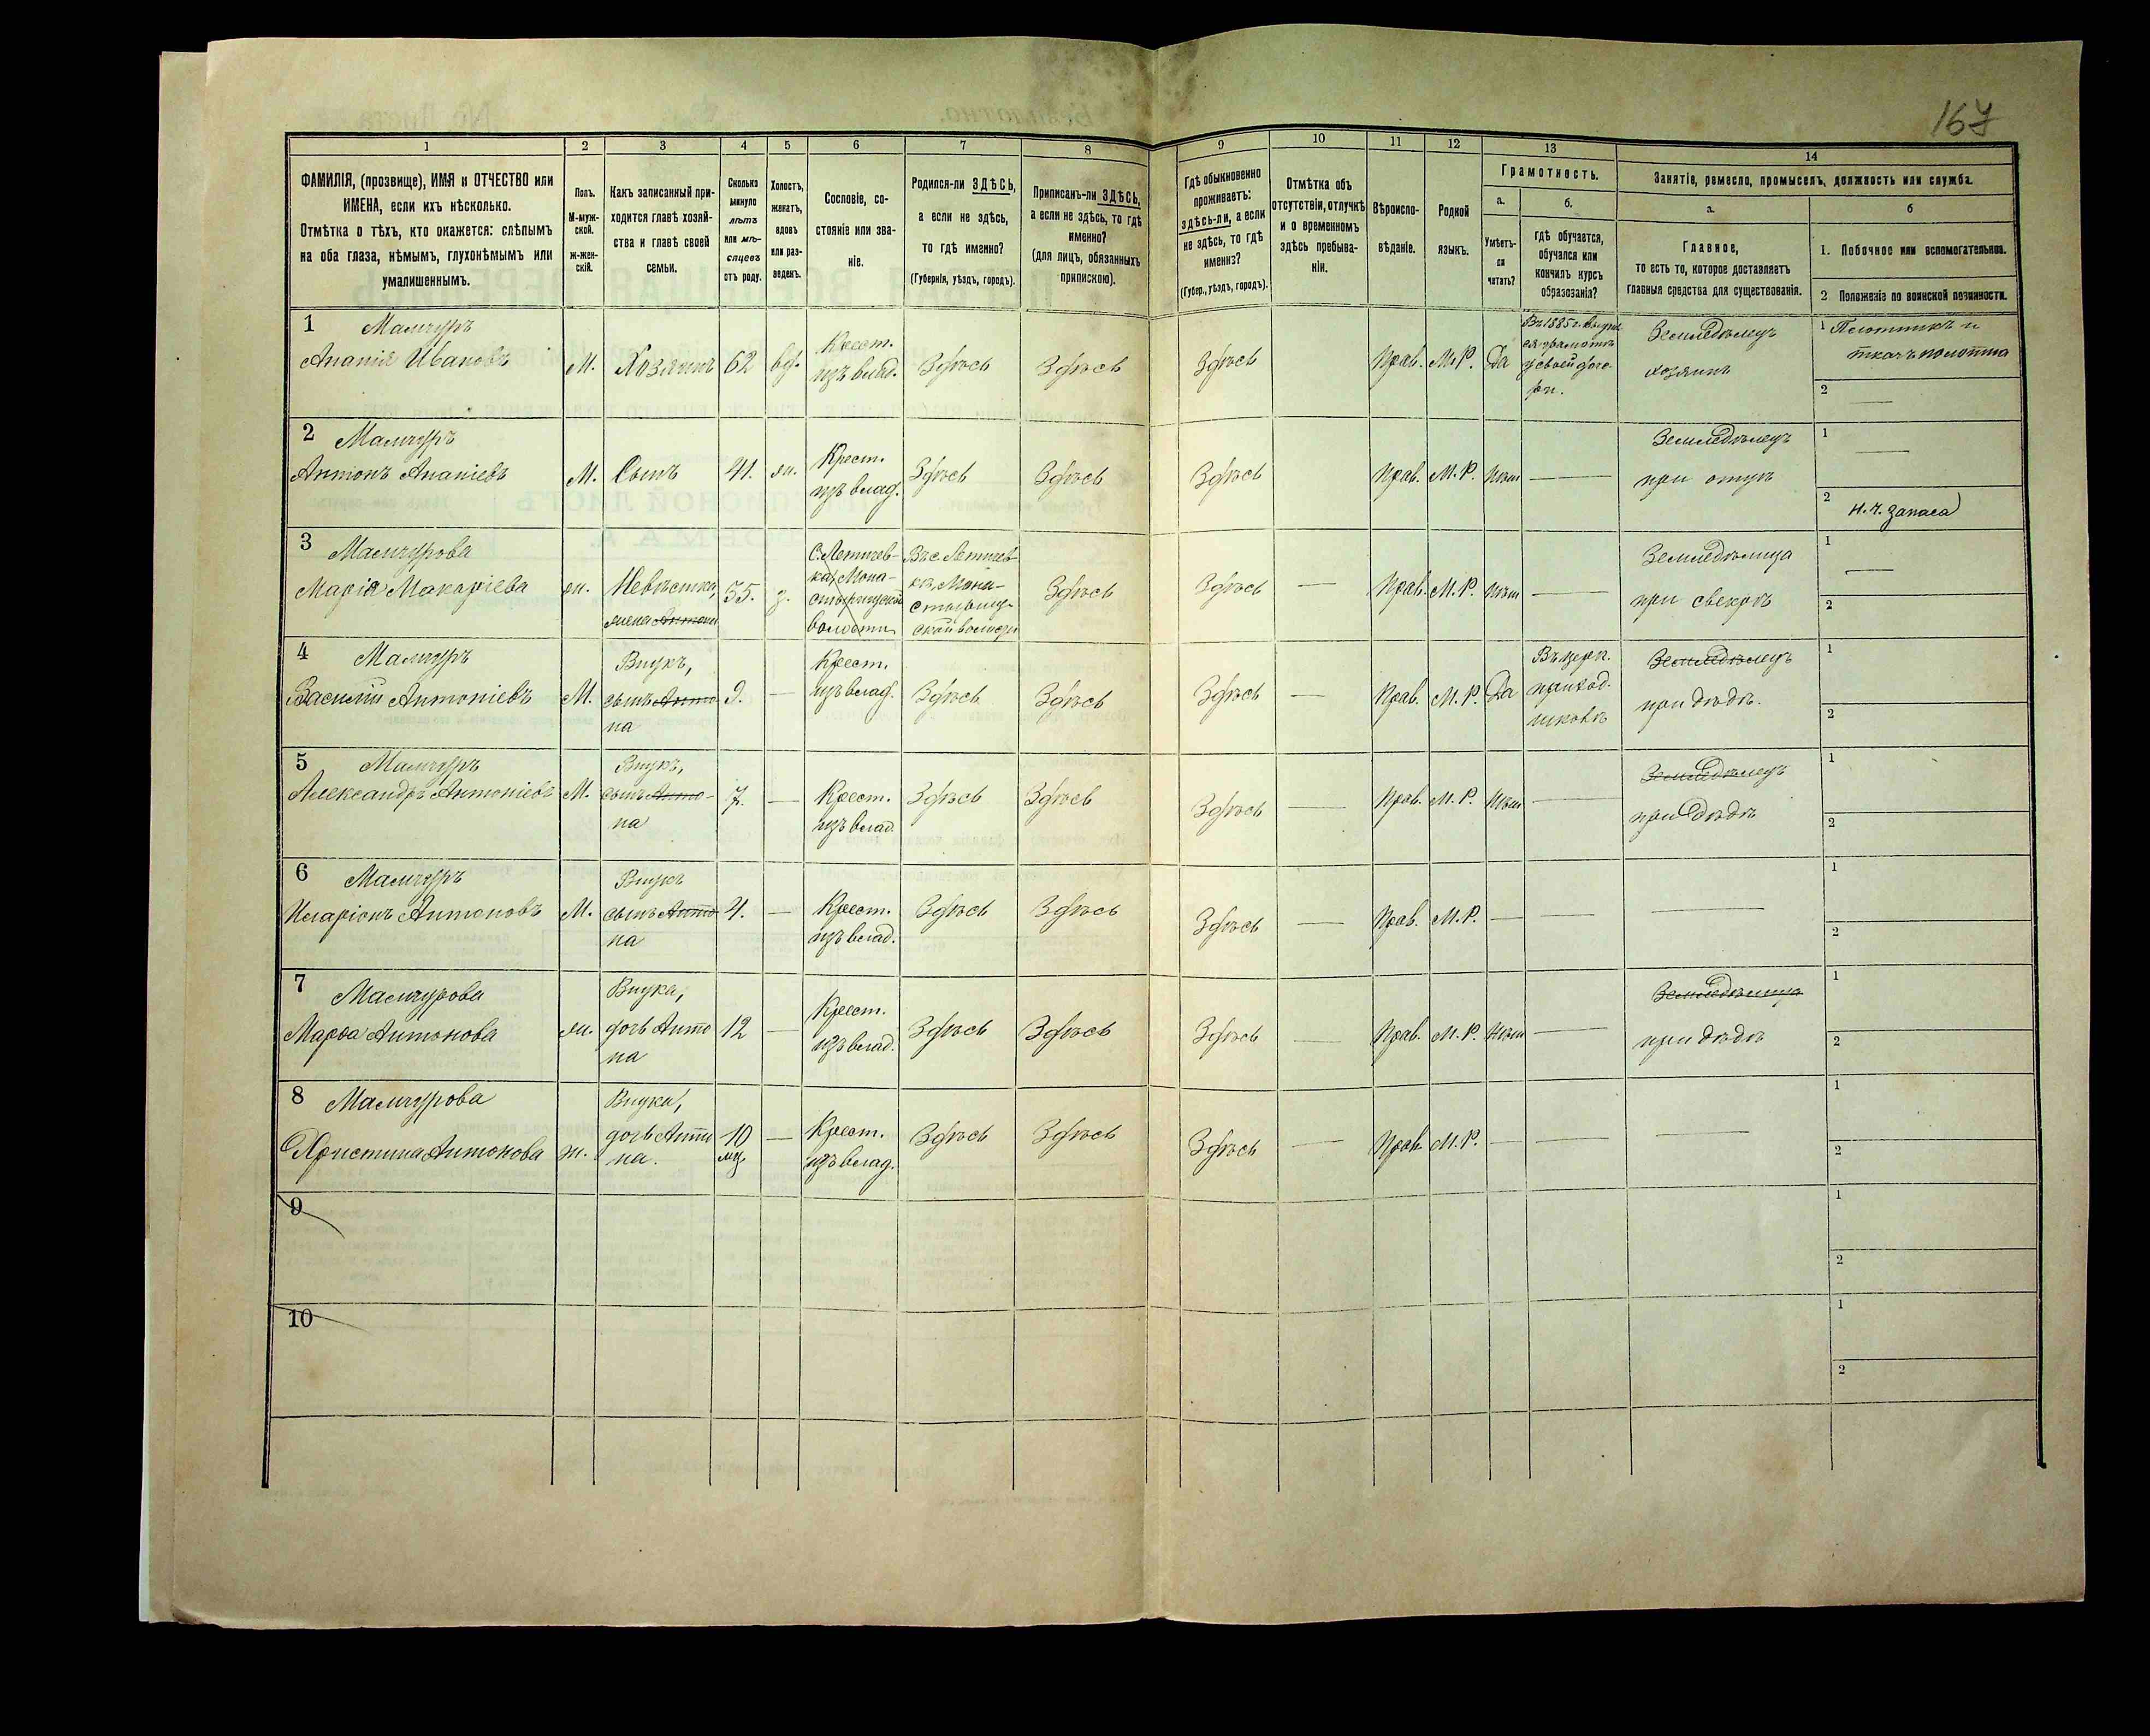 167
1 2 3 4 5 6 7 8 9 10 11 12 13 14
ФАМИЛІЯ, (прозвище), ИМЯ и ОТЧЕСТВО или
ИМЕНА, если ихъ нѣсколько.
Отмѣтка о тѣхъ, кто окажется: слѣпымъ
на оба глаза, нѣмымъ, глухонѣмымъ или
умалишеннымъ.
Полъ.
М-муж-
ской.
ж-жен-
скій.
Какъ записанный при-
ходится главѣ хозяй-
ства и главѣ своей
семьи.
Сколько
минуло
лѣтъ
или мѣ-
сяцевъ
отъ роду.
Холостъ,
женатъ,
вдовъ
или раз-
веденъ.
Сословіе, со-
стояніе или зва-
ніе.
Родился-ли ЗДѢСЬ,
а если не здѣсь,
то гдѣ именно?
(Губернія, уѣздъ, городъ).
Приписанъ-ли ЗДѢСЬ,
а если не здѣсь, то гдѣ
именно?
(для лицъ, обязанныхъ
припискою).
Гдѣ обыкновенно
проживаетъ:
здѣсь-ли, а если
не здѣсь, то гдѣ
именно?
(Губер., уѣздъ, городъ).
Отмѣтка объ
отсутствіи, отлучкѣ
и о временномъ
здѣсь пребыва-
ніи.
Вѣроиспо-
вѣданіе.
Родной
языкъ.
Грамотность.
а.
Умѣетъ-
ли
читать?
б.
гдѣ обучается,
обучался или
кончилъ курсъ
образованія?
Занятіе, ремесло, промыселъ, должность или служба.
а.
Главное,
то есть то, которое доставляетъ
главныя средства для существованія.
б
1. Побочное или вспомогательное.
2 Положеніе по воинской повинности.
1 Мамчуръ
Ананія Ивановъ
М.
Хозяинъ
62
вд.
Крест.
изъ влад.
Здѣсь
Здѣсь
Здѣсь
Прав.
М.Р.
Да
Земледѣлецъ
хозяинъ
1 Плотникъ и
ткачъ полотна
2 —
2 Мамчуръ
Антонъ Ананіевъ
М.
Сынъ
41.
ж.
Крест.
изъ влад.
Здѣсь
Здѣсь
Здѣсь
Прав.
М.Р.
Нѣт
—
Земледѣлецъ
при отцѣ
1 —
2 н.ч. запаса
3 Мамчурова
Марія Макаріева
ж.
Невѣстка,
жена Антона
35.
з.
С. Летичев-
ка, Мона-
стырищской
волости
Въ с. Летичев-
кѣ, Мона-
стырищ-
ской волости
Здѣсь
Здѣсь
—
Прав.
М.Р.
Нѣт
—
Земледѣлица
при свекрѣ
1 —
2
4 Мамчуръ
Василій Антоніевъ
М.
Внукъ,
сынъ Анто-
на
9.
—
Крест.
изъ влад.
Здѣсь
Здѣсь
Здѣсь
—
Прав.
М.Р.
Да
Въ церк.
приход.
школѣ
Земледѣлецъ
при дѣдѣ.
1
2
5 Мамчуръ
Александръ Антоніевъ
М.
Внукъ,
сынъ Анто-
на
7.
—
Крест.
изъ влад.
Здѣсь
Здѣсь
Здѣсь
—
Прав.
М.Р.
Нѣт
—
Земледѣлецъ
при дѣдѣ
1
2
6 Мамчуръ
Иларіонъ Антоновъ
М.
Внукъ
сынъ Анто
на
4.
—
Крест.
изъ влад.
Здѣсь
Здѣсь
Здѣсь
—
Прав.
М.Р.
—
—
—
1
2
7 Мамчурова
Марѳа Антонова
ж.
Внука,
дочь Анто
на
12
—
Крест.
изъ влад.
Здѣсь
Здѣсь
Здѣсь
—
Прав.
М.Р.
Нѣт
—
Земледѣлица
при дѣдѣ
1
2
8 Мамчурова
Христина Антонова
ж.
Внука,
дочь Анто
на.
10
мц.
—
Крест.
изъ влад.
Здѣсь
Здѣсь
Здѣсь
—
Прав.
М.Р.
—
—
—
1
2
9
1
2
10
1
2